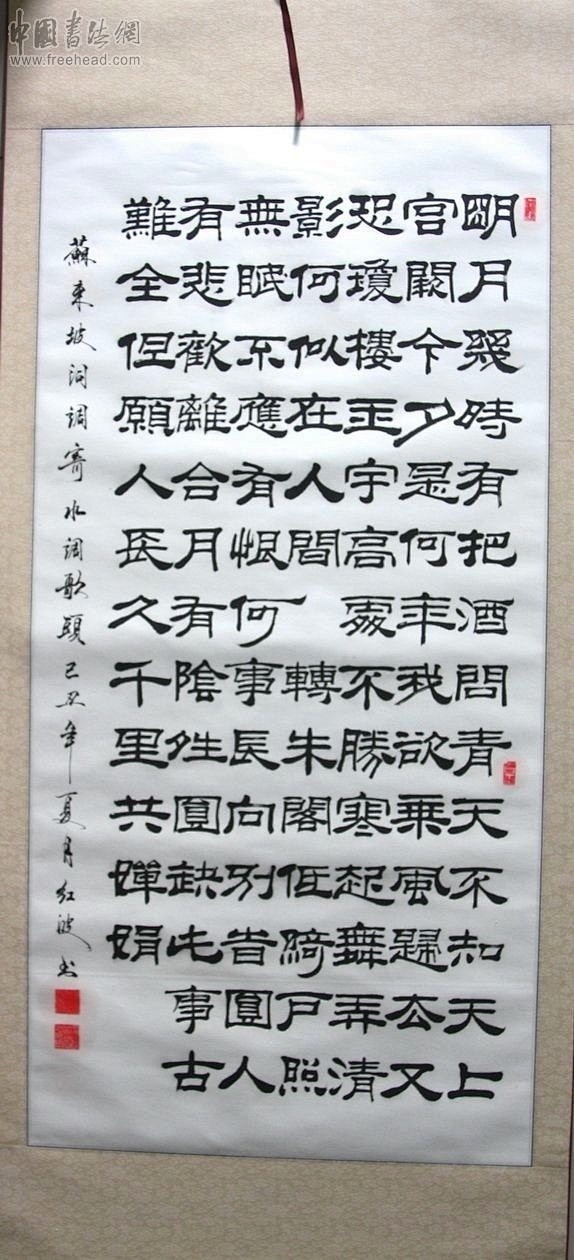 中國書法網
www.freehead.com
明月幾時有把酒問青天不知天上
宮闕今夕是何年我欲乘風歸去又
恐瓊樓玉宇高處不勝寒起舞弄清
影何似在人間轉朱閣低綺户照
無眠不應有恨何事長向别旹圓人
有悲歡離合月有陰夝圓缺此事古
難全但願人長久千里共嬋娟
蘇東坡词調寄水调歌頭己丑年夏月红波书